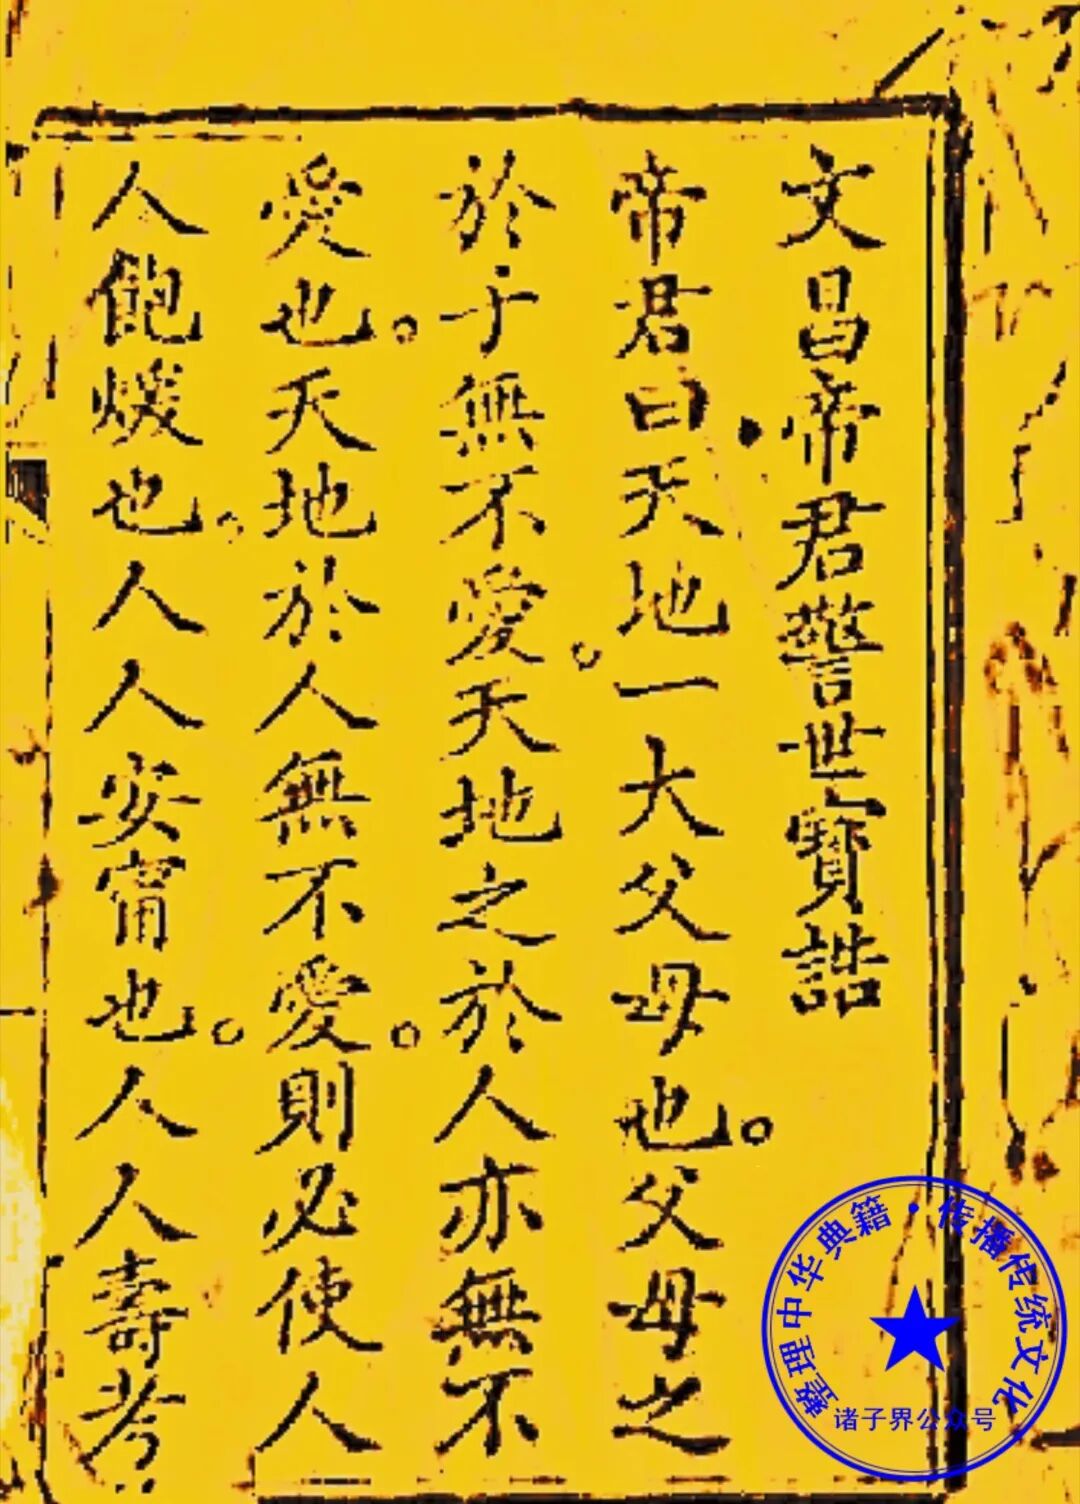 文昌帝君警世寶誥
帝君曰天地一大父母也。父母之
於子無不愛。天地之於人亦無不
愛也。天地於人無不愛。則必使人
人飽煖也。人人安甯也。人人壽考
整理中华典籍·传播传统文化
诸子界公众号